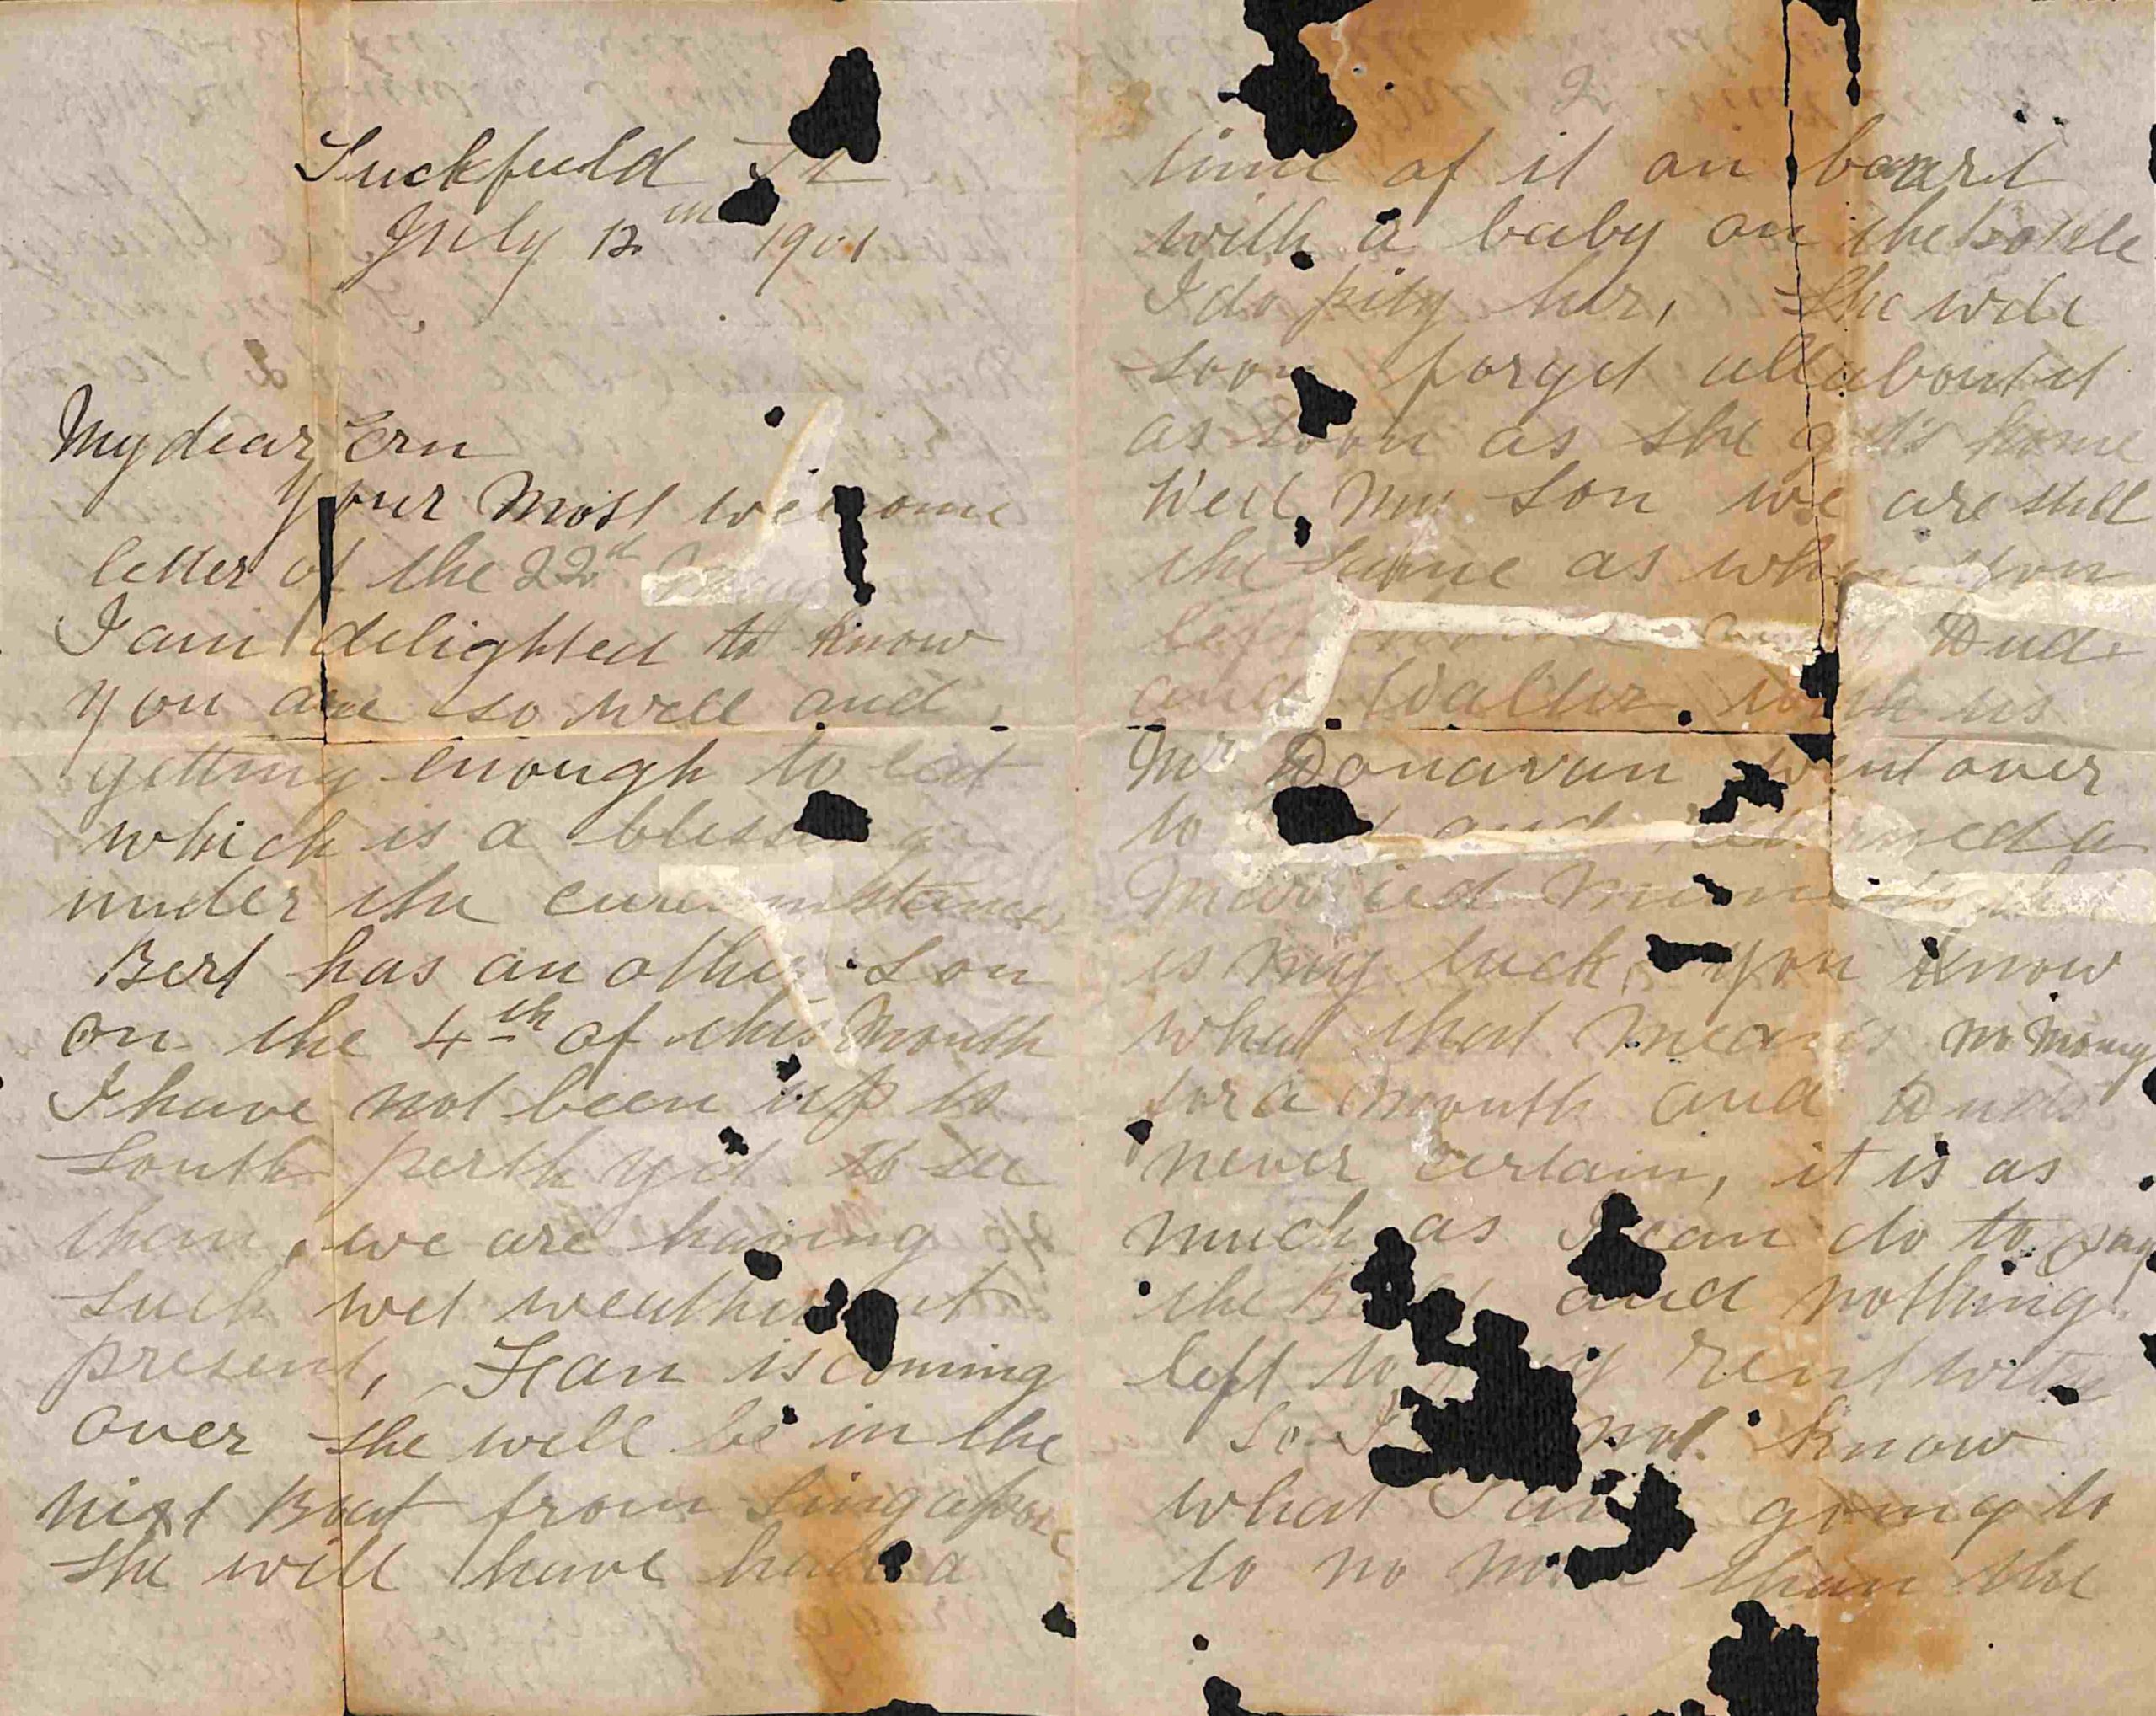 Suckfield St
July 12th 1901
My dear Ern
Your most welcome
letter of the 22d May
I am delighted to know
you are so well and
getting enough to eat
which is a blessing
under the circumstances
Bert has another Son
on the 4th of this Month
I have not been up to
South perth yet to see
them, we are having
such wet weather at
present, Fran is coming
over she will be in the
next Boat from Singapore
she will have had a
2
time of it on board
with a baby on the bottle
I do pity her, She will
soon forget all about it
as soon as she gets home
Well, my Son we are still
the same as when you
left Dude
and Walter with us
Mr Donavan went over
to and returned a
Married Man
is my luck, you know
what that means no money
for a month and Dude
never certain, it is as
much as I can do to pay
the and nothing
left to pay rent with
So I not know
what I am going to
to no more than the